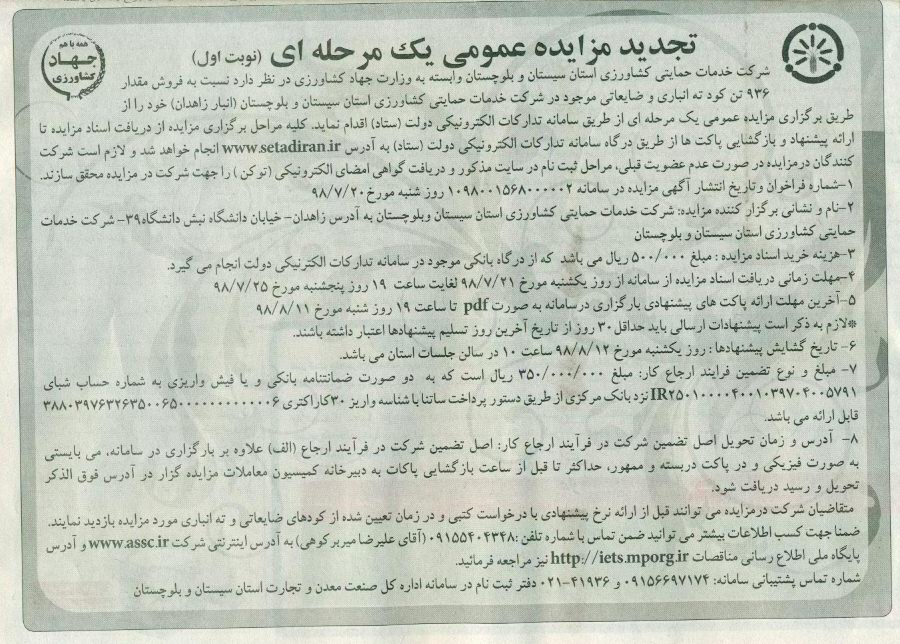 همه با هم
جهاد
کشاورزی
تجدید مزایده عمومی یک مرحله ای (نوبت اول)
شرکت خدمات حمایتی کشاورزی استان سیستان و بلوچستان وابسته به وزارت جهاد کشاورزی در نظر دارد نسبت به فروش مقدار
۹۳۶ تن کود ته انباری و ضایعاتی موجود در شرکت خدمات حمایتی کشاورزی استان سیستان و بلوچستان (انبار زاهدان) خود را از
طریق برگزاری مزایده عمومی یک مرحله ای از طریق سامانه تدارکات الکترونیکی دولت (ستاد) اقدام نماید. کلیه مراحل برگزاری مزایده از دریافت اسناد مزایده تا
ارائه پیشنهاد و بازگشایی پاکت ها از طریق درگاه سامانه تدارکات الکترونیکی دولت (ستاد) به آدرس www.setadiran.ir انجام خواهد شد و لازم است شرکت
کنندگان درمزایده در صورت عدم عضویت قبلی، مراحل ثبت نام در سایت مذکور و دریافت گواهی امضای الکترونیکی (توکن) را جهت شرکت در مزایده محقق سازند.
۱-شماره فراخوان و تاریخ انتشار آگهی مزایده در سامانه ۱۰۹۸۰۰۱۵۶۸۰۰۰۰۰۲ روز شنبه مورخ ۹۸/۷/۲۰
۲-نام و نشانی برگزار کننده مزایده: شرکت خدمات حمایتی کشاورزی استان سیستان وبلوچستان به آدرس زاهدان- خیابان دانشگاه نبش دانشگاه۳۹- شرکت خدمات
حمایتی کشاورزی استان سیستان و بلوچستان
۳-هزینه خرید اسناد مزایده : مبلغ ۵۰۰/۰۰۰ ریال می باشد که از درگاه بانکی موجود در سامانه تدارکات الکترونیکی دولت انجام می گیرد.
۴-مهلت زمانی دریافت اسناد مزایده از سامانه از روز یکشنبه مورخ ۹۸/۷/۲۱ لغایت ساعت ۱۹ روز پنجشنبه مورخ ۹۸/۷/۲۵
۵-آخرین مهلت ارائه پاکت های پیشنهادی بارگزاری درسامانه به صورت pdf تا ساعت ۱۹ روز شنبه مورخ ۹۸/۸/۱۱
*لازم به ذکر است پیشنهادات ارسالی باید حداقل ۳۰ روز از تاریخ آخرین روز تسلیم پیشنهادها اعتبار داشته باشند.
۶- تاریخ گشایش پیشنهادها : روز یکشنبه مورخ ۹۸/۸/۱۲ ساعت ۱۰ در سالن جلسات استان می باشد.
۷- مبلغ و نوع تضمین فرایند ارجاع کار: مبلغ ۳۵۰/۰۰۰/۰۰۰ ریال است که به دو صورت ضمانتنامه بانکی و یا فیش واریزی به شماره حساب شبای
IR۲۵۰۱۰۰۰۰۴۰۰۱۰۳۹۷۰۴۰۰۵۷۹۱ نزد بانک مرکزی از طریق دستور پرداخت ساتنا با شناسه واریز ۳۰کاراکتری ۳۸۸۰۳۹۷۶۳۲۶۳۵۰۰۶۵۰۰۰۰۰۰۰۰۰۰۰۰۶
قابل ارائه می باشد.
۸- آدرس و زمان تحویل اصل تضمین شرکت در فرآیند ارجاع کار: اصل تضمین شرکت در فرآیند ارجاع (الف) علاوه بر بارگزاری در سامانه، می بایستی
به صورت فیزیکی و در پاکت دربسته و ممهور، حداکثر تا قبل از ساعت بازگشایی پاکات به دبیرخانه کمیسیون معاملات مزایده گزار در آدرس فوق الذکر
تحویل و رسید دریافت شود.
متقاضیان شرکت درمزایده می توانند قبل از ارائه نرخ پیشنهادی با درخواست کتبی و در زمان تعیین شده از کودهای ضایعاتی و ته انباری مورد مزایده بازدید نمایند.
ضمنا جهت کسب اطلاعات بیشتر می توانید ضمن تماس با شماره تلفن :۰۹۱۵۵۴۰۴۳۴۸ (آقای علیرضا میربرکوهی) به آدرس اینترنتی شرکت www.assc.ir و آدرس
پایگاه ملی اطلاع رسانی مناقصات http://iets.mporg.ir نیز مراجعه فرمائید.
شماره تماس پشتیبانی سامانه: ۰۹۱۵۶۶۹۷۱۷۴ و ۴۱۹۳۶-۰۲۱ دفتر ثبت نام در سامانه اداره کل صنعت معدن و تجارت استان سیستان و بلوچستان